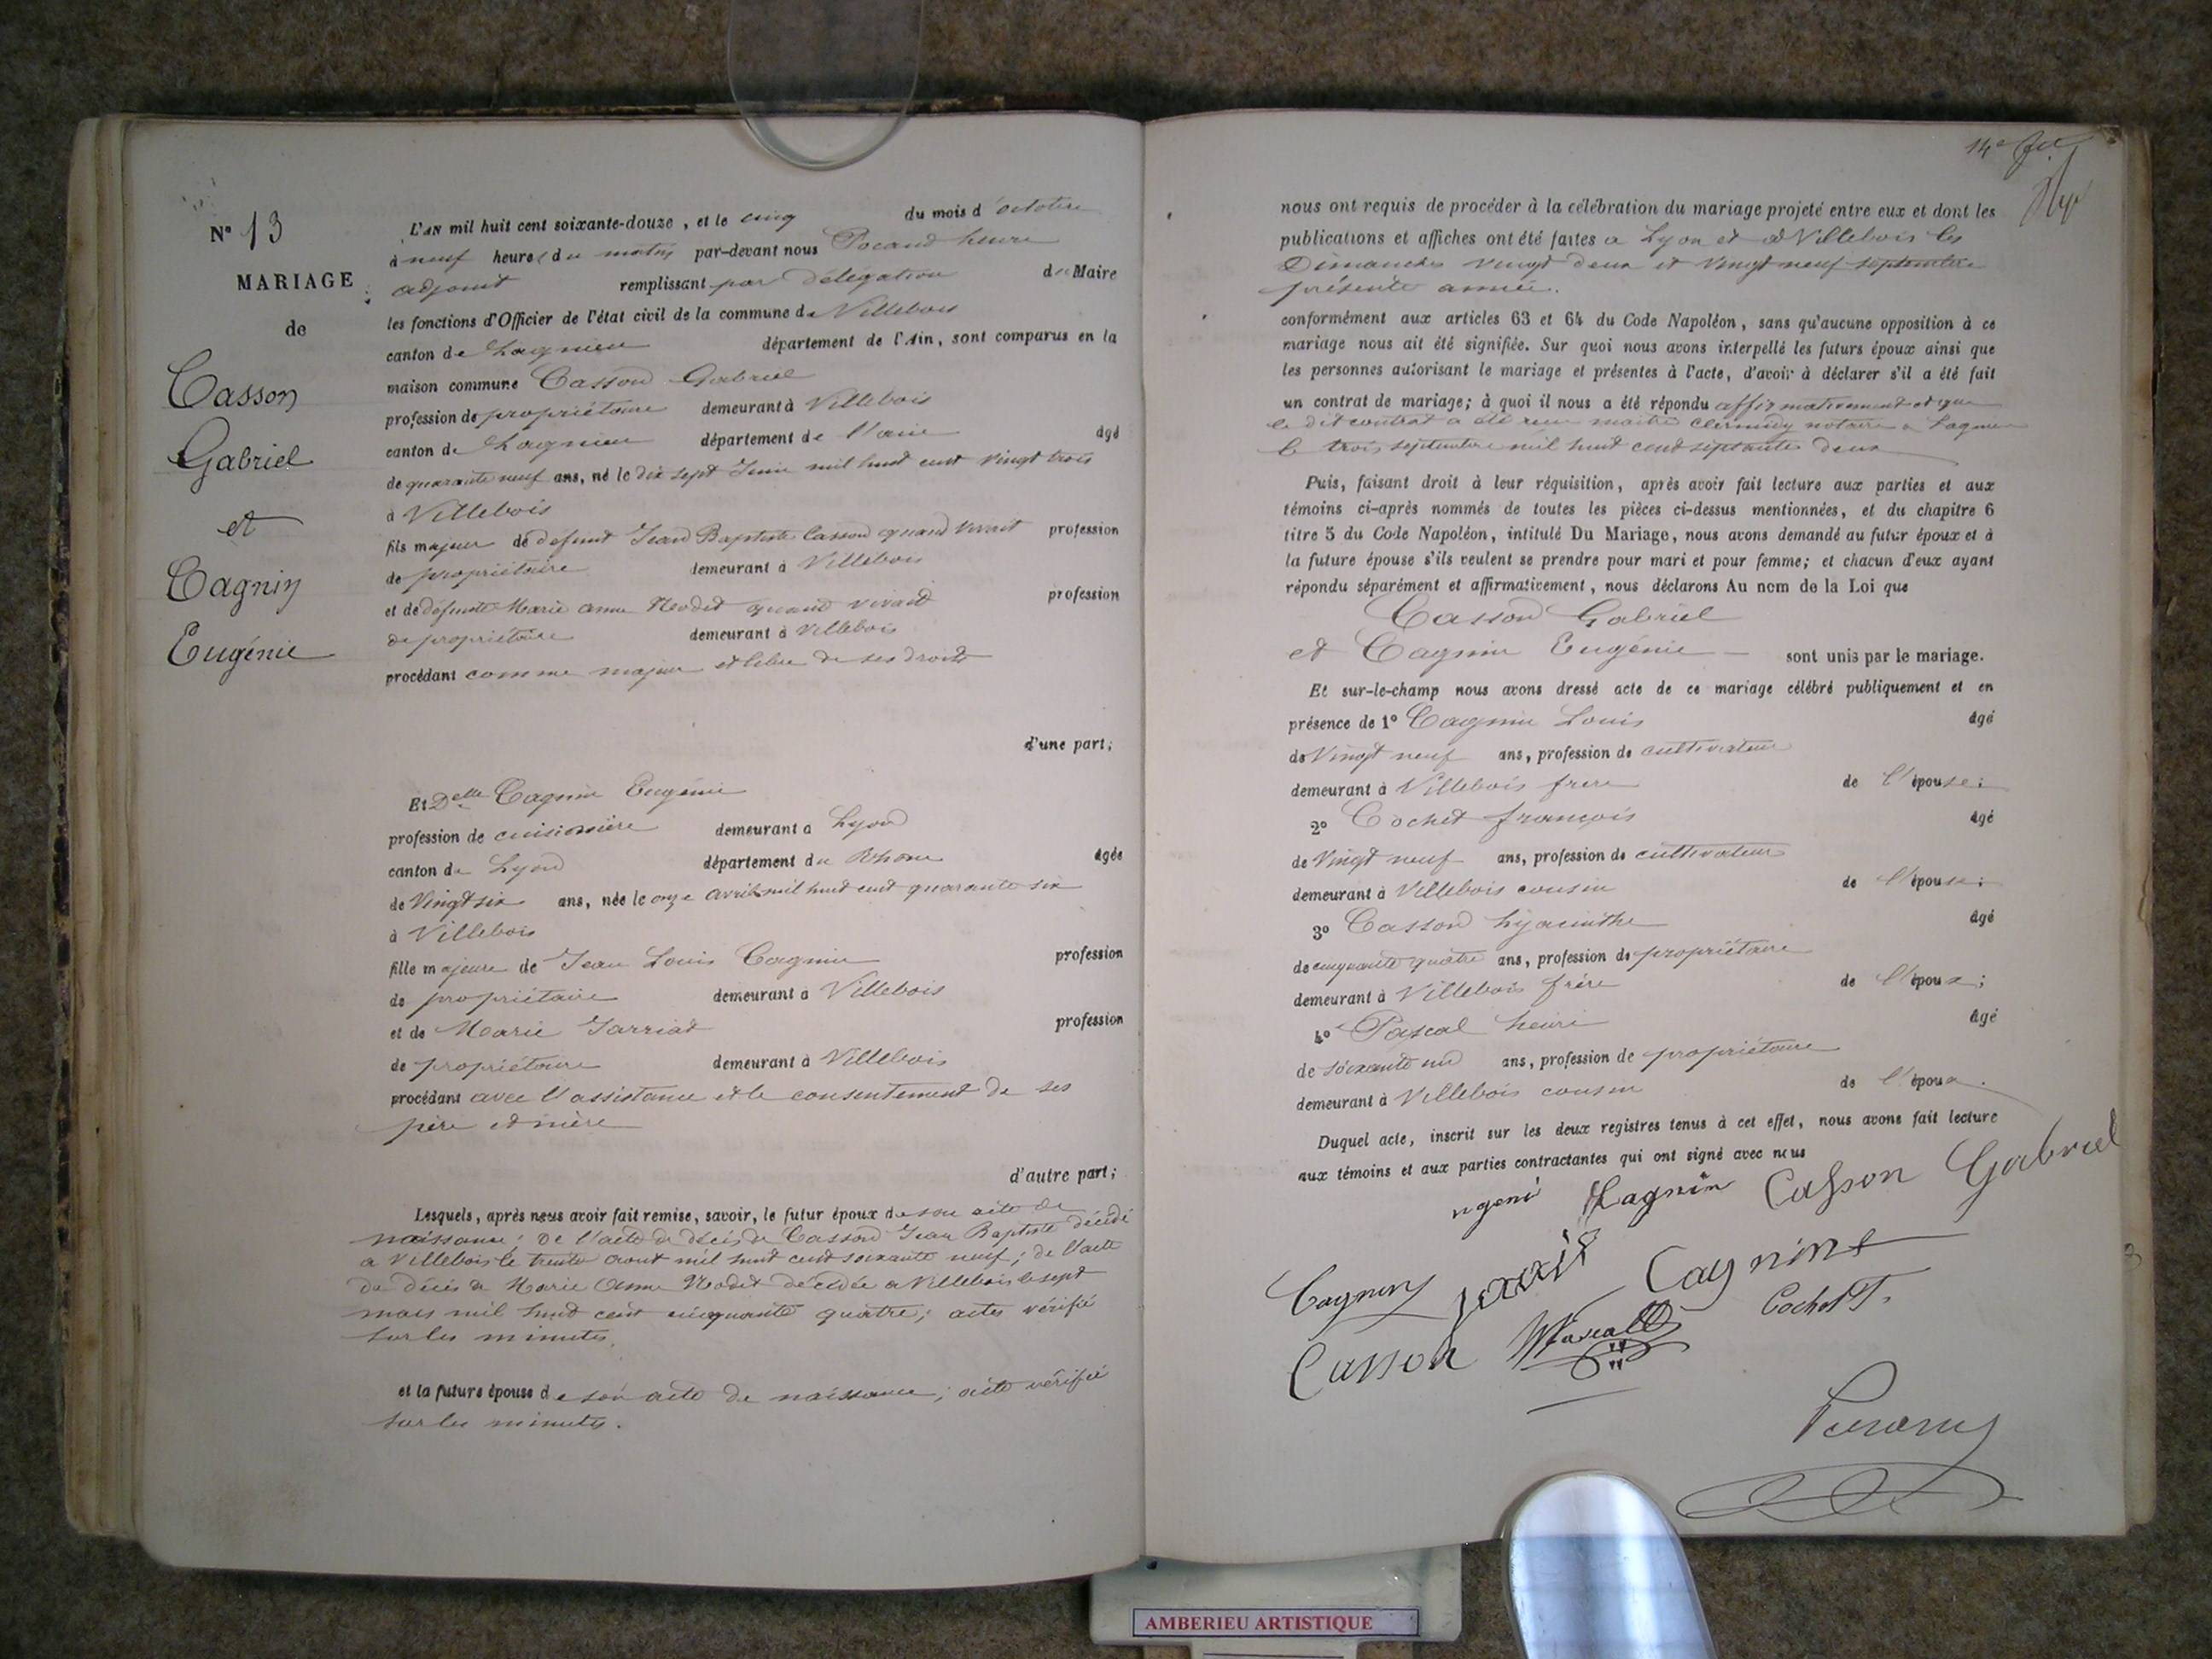 N° 13
MARIAGE
de
Casson
Gabriel
et
Cagnin
Eugénie
L'AN mil huit cent soixante-douze, et le cinq du mois d'octobre
à neuf heures du matin par-devant nous Pocand henri
adjoint remplissant par délégation du Maire
les fonctions d'Officier de l'état civil de la commune de Villebois
canton de Lagnieu département de l'Ain, sont comparus en la
maison commune Casson Gabriel
profession de propriétaire demeurant à Villebois
canton de Lagnieu département de l'ain âgé
de quarante neuf ans, né le dix sept Juin mil huit cent vingt trois
à Villebois
fils majeur de defunt Jean Baptiste Casson quand vivait profession
de propriétaire demeurant à Villebois
et de défunte Marie anne Nodet quand vivait profession
de propriétaire demeurant à Villebois
procédant comme majeur et libre de ses droits
d'une part;
Et Delle Cagnin Eugénie
profession de cuisinière demeurant à Lyon
canton de Lyon département du Rhone âgée
de Vingt six ans, née le onze avril mil huit cent quarante six
à Villebois
fille majeure de Jean Louis Cagnin profession
de propriétaire demeurant à Villebois
et de Marie Jarriat profession
de propriétaire demeurant à Villebois
procédant avec l'assistance et le consentement de ses
père et mère
d'autre part;
Lesquels, après nous avoir fait remise, savoir, le futur époux de son acte de
naissance; de l'acte de décès de Casson Jean Baptiste décédé
à Villebois le trente aout mil huit cent soixante neuf; de l'acte
de décès de Marie Anne Nodet décédée à Villebois le sept
mars mil huit cent cinquante quatre; actes vérifié
sur les minutes.
et la future épouse de son acte de naissance; acte vérifié
sur les minutes.
14e
nous ont requis de procéder à la célébration du mariage projeté entre eux et dont les
publications et affiches ont été faites a Lyon et à Villebois les
Dimanches vingt deux et vingt neuf septembre
présente année.
conformément aux articles 63 et 64 du Code Napoléon, sans qu'aucune opposition à ce
mariage nous ait été signifiée. Sur quoi nous avons interpellé les futurs époux ainsi que
les personnes autorisant le mariage et présentes à l'acte, d'avoir à déclarer s'il a été fait
un contrat de mariage; à quoi il nous a été répondu affirmativement et que
le dit contrat a été reçu maitre notaire a Lagnieu
le trois septembre mil huit cent septante deux
Puis, faisant droit à leur réquisition, après avoir fait lecture aux parties et aux
témoins ci-après nommés de toutes les pièces ci-dessus mentionnées, et du chapitre 6
titre 5 du Code Napoléon, intitulé Du Mariage, nous avons demandé au futur époux et à
la future épouse s'ils veulent se prendre pour mari et pour femme; et chacun d'eux ayant
répondu séparément et affirmativement, nous déclarons Au nom de la Loi que
Casson Gabriel
et Cagnin Eugénie sont unis par le mariage.
Et sur-le-champ nous avons dressé acte de ce mariage célébré publiquement et en
présence de 1° Cagnin Louis âgé
de Vingt neuf ans, profession de cultivateur
demeurant à Villebois frere de l'épouse;
2° Cochet françois âgé
de Vingt neuf ans, profession de cultivateur
demeurant à Villebois cousin de l'épouse;
3° Casson hyacinthe âgé
de cinquante quatre ans, profession de propriétaire
demeurant à Villebois frère de l'époux;
4° Pascal henri âgé
de soixante un ans, profession de propriétaire
demeurant à Villebois cousin de l'époux.
Duquel acte, inscrit sur les deux registres tenus à cet effet, nous avons fait lecture
aux témoins et aux parties contractantes qui ont signé avec nous
ugeni Cagnin Casson Gabriel
Cagnin Louis Cagnin
Casson Pascal Cochet F.
AMBERIEU ARTISTIQUE